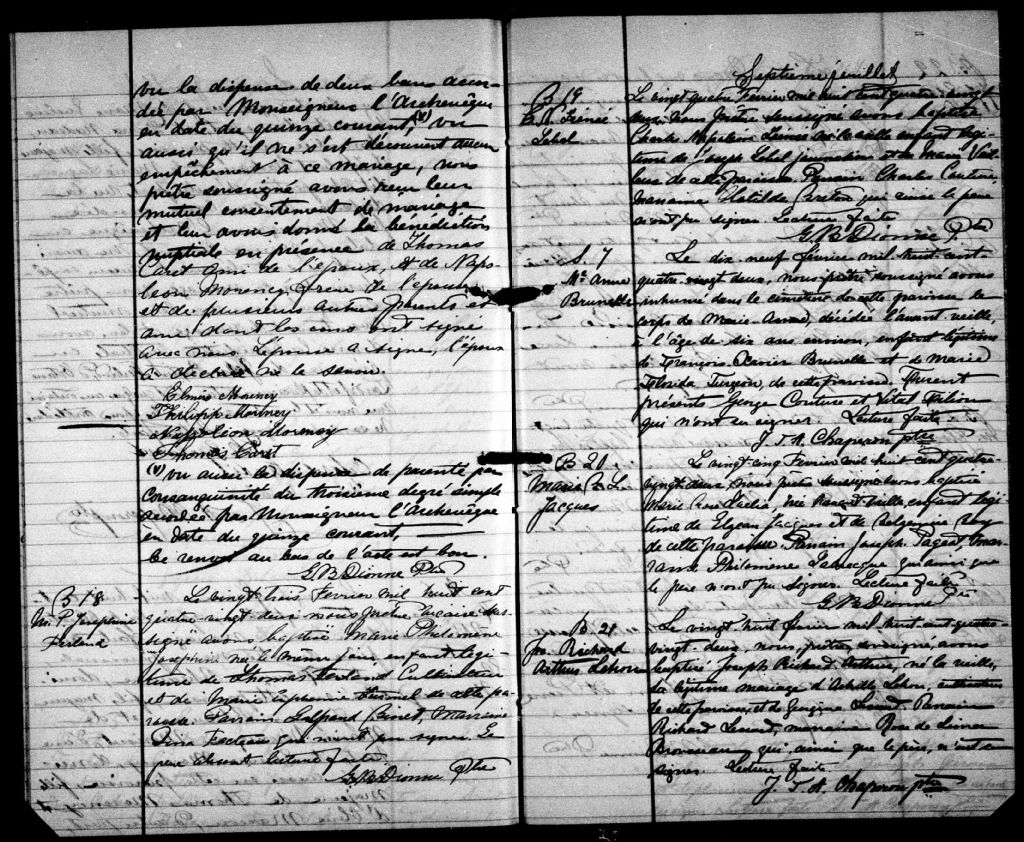 vu la dispense de deux bans accor-
dée par Monseigneur l'Archevêque
en date du quinze courant, (v) vu
aussi qu'il ne s'est découvert aucun
empêchement à ce mariage, nous
prêtre soussigné avons reçu leur
mutuel consentement de mariage
et leur avons donné la bénédiction
nuptiale en présence de Thomas
Caret ami de l'époux, et de Napo-
léon Morency frère de l'épouse
et de plusieurs autres parents et
amis dont les uns ont signé
avec nous. L'épouse a signé, l'époux
a déclaré ne le savoir.
Elmire Morency
Philippe Morency
Napoléon Morency
Thomas Caret
(v) vu aussi la dispense de parenté par
consanguinité du troisième degré simple
accordée par Monseigneur l'Archevêque
en date du quinze courant,
Ce renvoi au bas de l'acte est bon.
G B Dionne Ptre
B 18
M. P. Josephine
Ferland
Le vingt trois Fevrier mil huit cent
quatre vingt deux nous prêtre vicaire sous-
signé avons baptisé Marie Philomène
Josephine née le même jour, enfant légi-
time de Thomas Ferland Cultivateur
et de Marie Euphemie de cette pa-
roisse. Parrain Binet, Marraine
qui n'ont pu signer. Le
père absent lecture faite
G B Dionne Ptre
Septième feuillet
B 19
Irénée
Lebel
Le vingt quatre Fevrier mil huit cent quatre vingt
deux Nous prêtre soussigné avons baptisé
Charles Napoléon Irénée né la veille enfant légi-
time de Joseph Lebel journalier et de Marie
de cette paroisse Parrain Charles Couture,
marraine Clotilde Breton qui ainsi le père
n'ont pu signer. Lecture faite
G B Dionne Ptre
S. 7
Me Anna
Brunelle
Le dix neuf Février mil huit cent-
quatre-vingt deux, nous prêtre soussigné avons
inhumé dans le cimetière de cette paroisse le
corps de Marie-Anna, décédée l'avant veille,
à l'âge de six ans environ, enfant légitime
de François Xavier Brunelle et de Marie
Florida Turgeon, de cette paroisse. Furent
présents George Couture et Vital
qui n'ont su signer. Lecture faite
J. T. A. Chaperon ptre
B 20
Marie R. L.
Jacques
Le vingt cinq Fevrier mil huit-cent quatre-
vingt deux Nous prêtre soussigné avons baptisé
Marie Rose née l'avant-veille, enfant légi-
time de Elzear Jacques et de Roy
de cette paroisse. Parrain Joseph Paget, mar-
raine Philomene Labrecque qui ainsi que
le père n'ont pu signer. Lecture faite
G B Dionne Ptre
B. 21
Jos Richard
Arthur Lehoux
Le vingt huit février mil huit-cent-quatre-
vingt-deux, nous, prêtre, soussigné, avons
baptisé Joseph Richard Arthur, né la veille,
du légitime mariage d'Achille Lehoux, cultivateur
de cette paroisse, et de Georgina Parrain
Richard marraine Rose de Lima
Brousseau qui ainsi que le père, n'ont su
signer. Lecture faite
J. T. A. Chaperon ptre